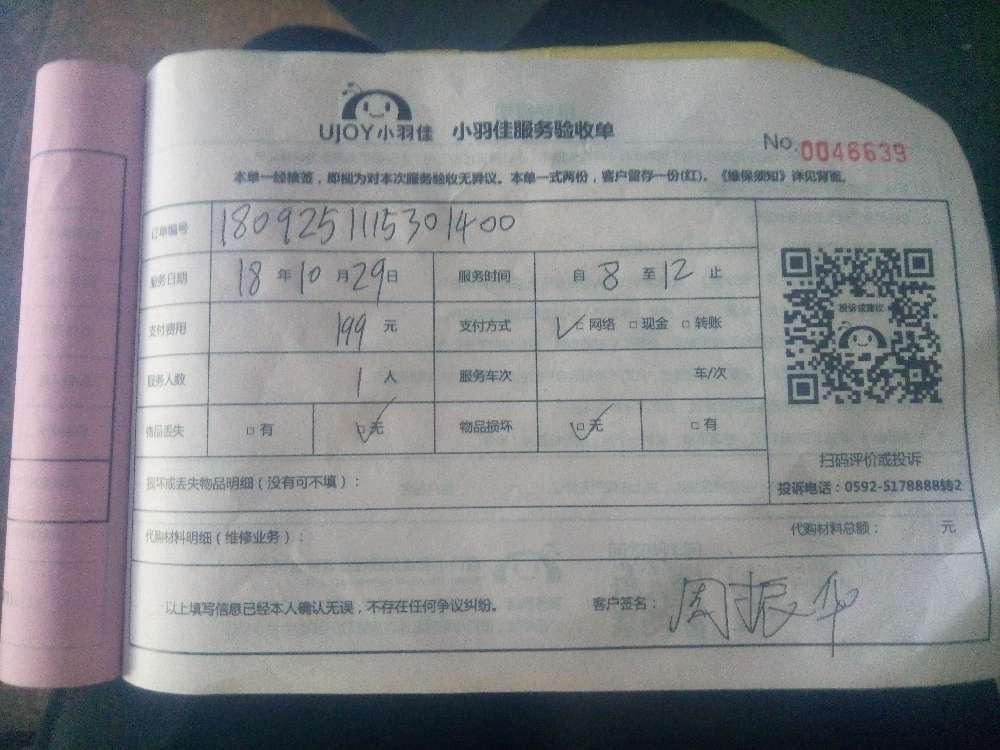 UJOY小羽佳 小羽佳服务验收单
No.0046639
本单一经核签，即视为对本次服务验收无异议。本单一式两份，客户留存一份(红)。《维保须知》详见背面。
订单编号 1809251115301400
服务日期 18 年 10 月 29 日 服务时间 自 8 至 12 止
支付费用 199 元 支付方式 ✓□网络 □现金 □转账
服务人数 1 人 服务车次 车/次
物品丢失 □有 ☑无 物品损坏 ☑无 □有
投诉或建议
扫码评价或投诉
投诉电话：0592-5178888转2
损坏或丢失物品明细（没有可不填）：
代购材料明细（维修业务）： 代购材料总额： 元
以上填写信息已经本人确认无误，不存在任何争议纠纷。 客户签名：周振华